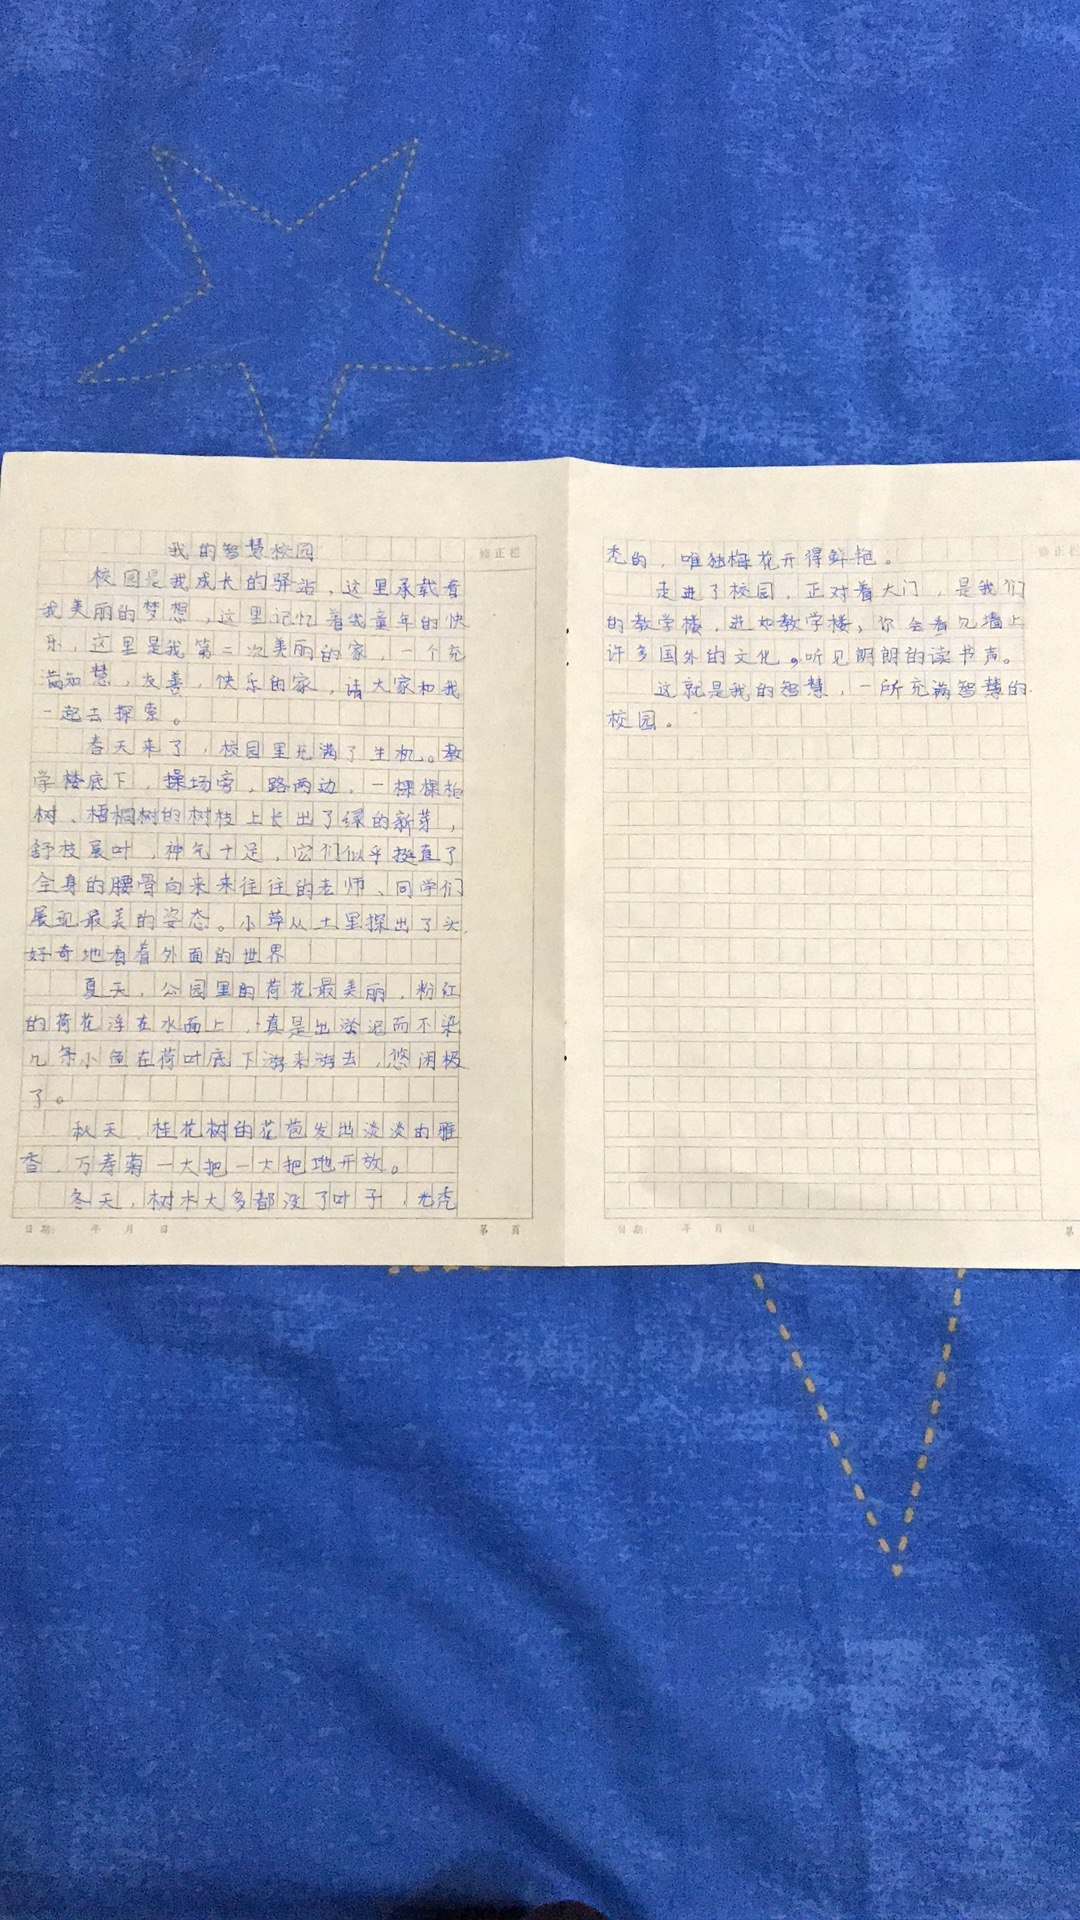 我的智慧校园
修正栏
校园是我成长的驿站，这里承载着
我美丽的梦想，这里记忆着我童年的快
乐，这里是我第二次美丽的家，一个充
满知慧，友善，快乐的家，请大家和我
一起去探索。
春天来了，校园里充满了生机。教
学楼底下，操场旁，路两边，一棵棵柏
树、梧桐树的树枝上长出了绿的新芽，
舒枝展叶，神气十足，它们似乎挺直了
全身的腰骨向来来往往的老师、同学们
展现最美的姿态。小草从土里探出了头，
好奇地看着外面的世界
夏天，公园里的荷花最美丽，粉红
的荷花浮在水面上，真是出淤泥而不染
几条小鱼在荷叶底下游来游去，悠闲极
了。
秋天，桂花树的花苞发出淡淡的雅
香，万寿菊一大把一大把地开放。
冬天，树木大多都没了叶子，光秃
日期： 年 月 日 第 页
修正栏
秃的，唯独梅花开得鲜艳。
走进了校园，正对着大门，是我们
的教学楼，进如教学楼，你会看见墙上
许多国外的文化，听见朗朗的读书声。
这就是我的智慧，一所充满智慧的
校园。
日期： 年 月 日 第